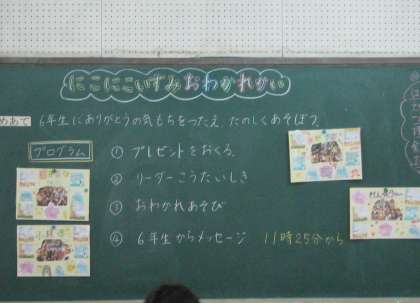 にこにこいずみおわかれかい
めあて 6年生にありがとうの気もちをつたえ、たのしくあそぼう。
プログラム
① プレゼントをおくる。
② リーダーこうたいしき
③ おわかれあそび
④ 6年生からメッセージ 11時25分から